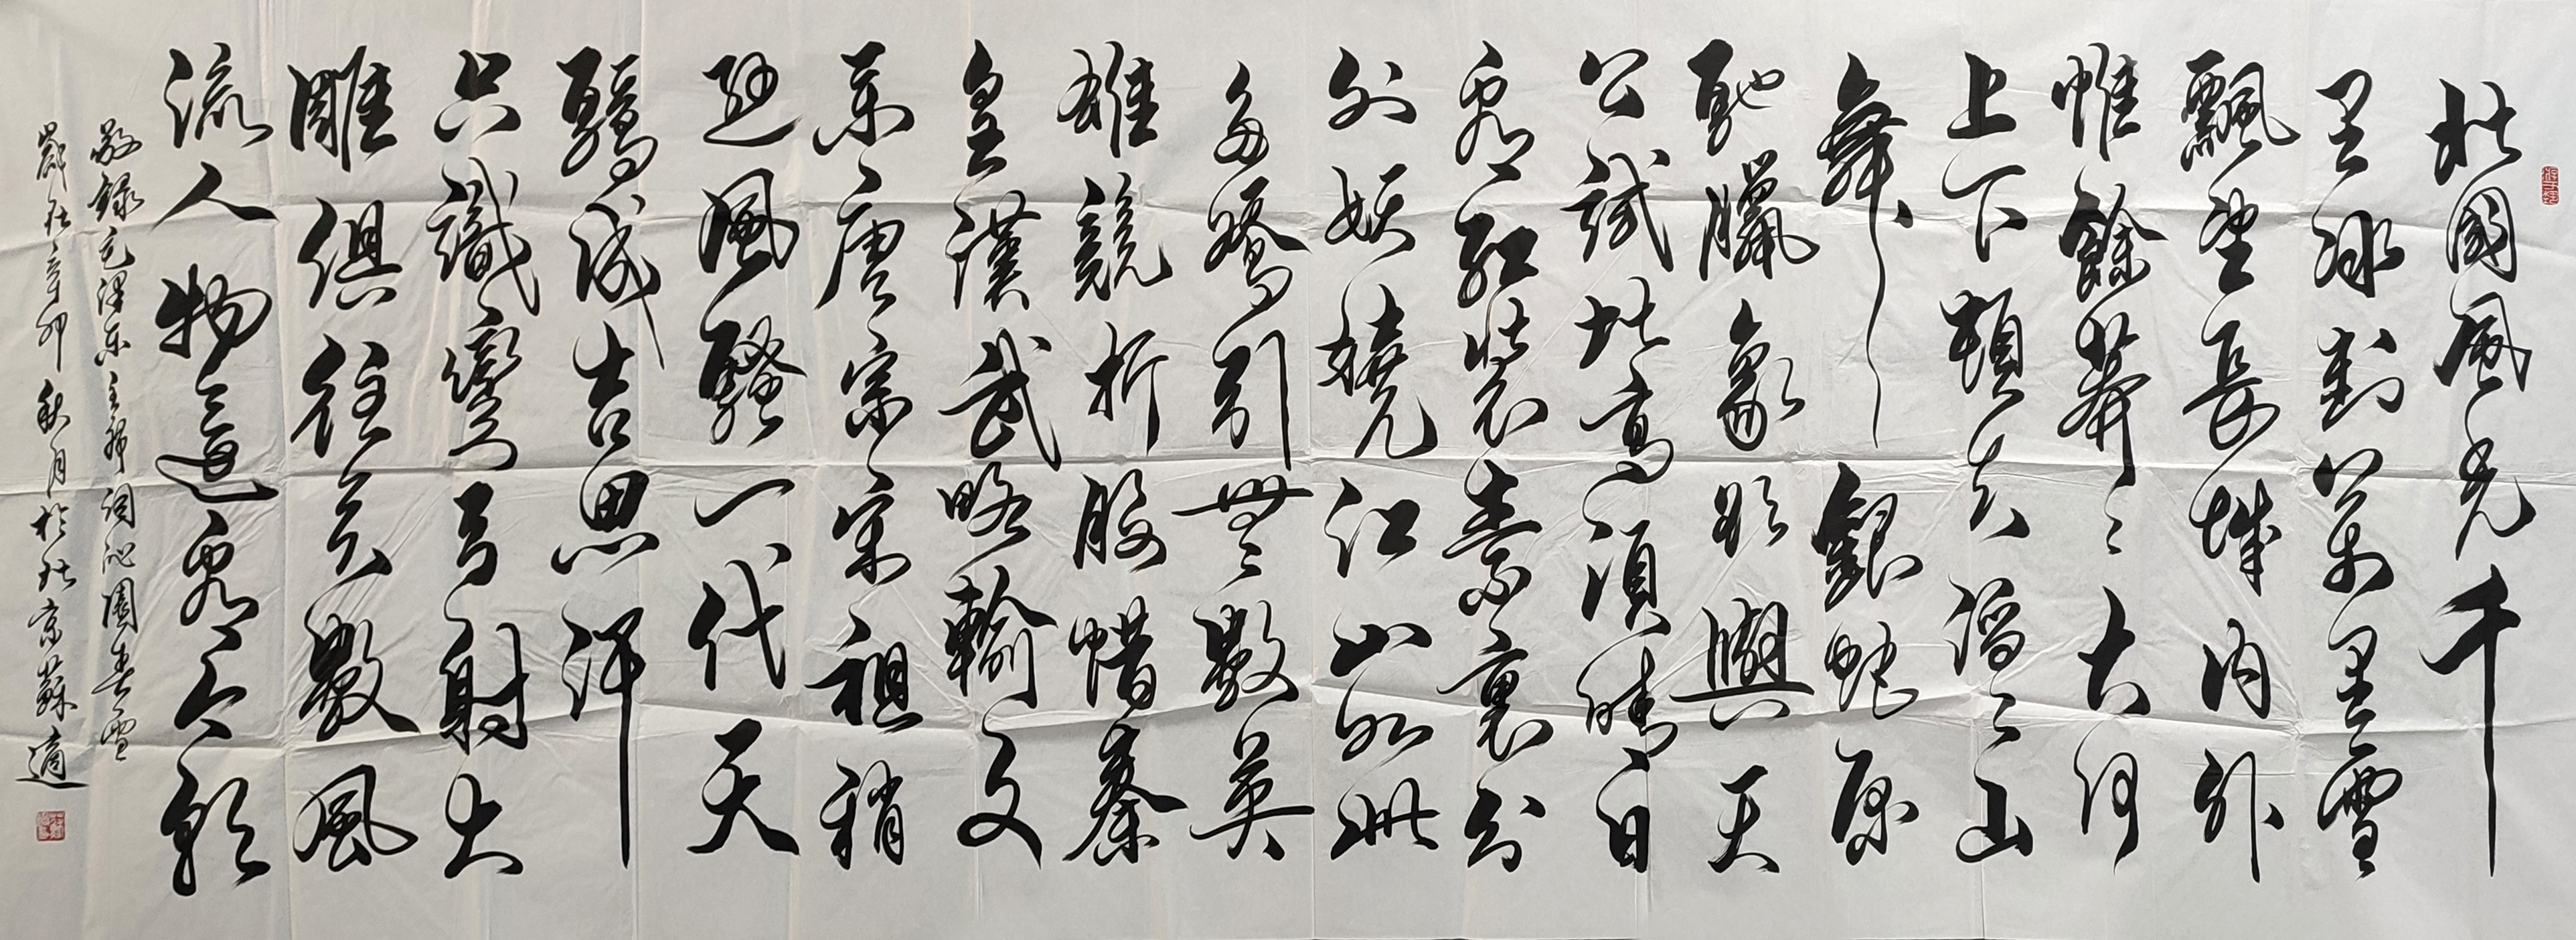 北國風光千
里冰封萬里雪
飄望長城内外
惟餘莽〻大河
上下頓失滔〻山
舞銀蛇原
馳臘象欲與天
公試比高須晴日
看紅裝素裹分
外妖嬈江山如此
多嬌引無數英
雄競折腰惜秦
皇漢武略輸文
采唐宗宋祖稍
遜風騷一代天
驕成吉思汗
只識彎弓射大
雕俱往矣數風
流人物還看今朝
敬錄毛澤東主席詞沁園春雪
歲在辛卯秋月於北京蘇適